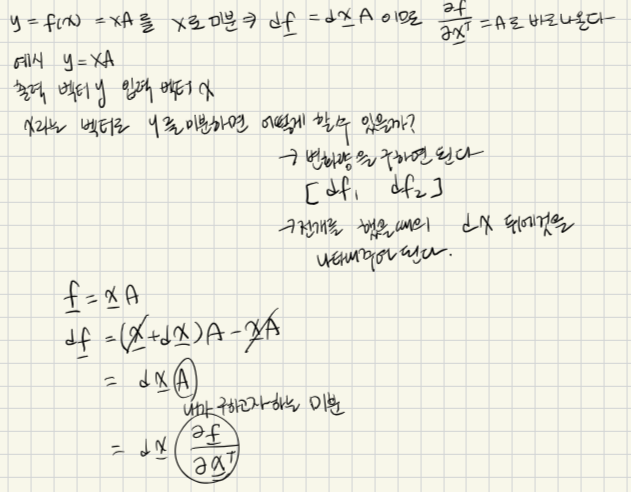 y = f(x) = xA를 x로 미분 → df = dx A 이므로 ∂f/∂xᵀ = A로 바로나온다
예시 y = xA
출력 벡터 y 입력 벡터 x
x라는 벡터로 y를 미분하면 어떻게 할수 있을까?
→ 변화량을 구하면 된다
[df₁ df₂]
→ 전개를 했을때의 dx 뒤에것을
된다.
f = xA
df = (x+dx)A - xA
= dx A
내가 구하고자하는 미분
= dx ∂f/∂xᵀ